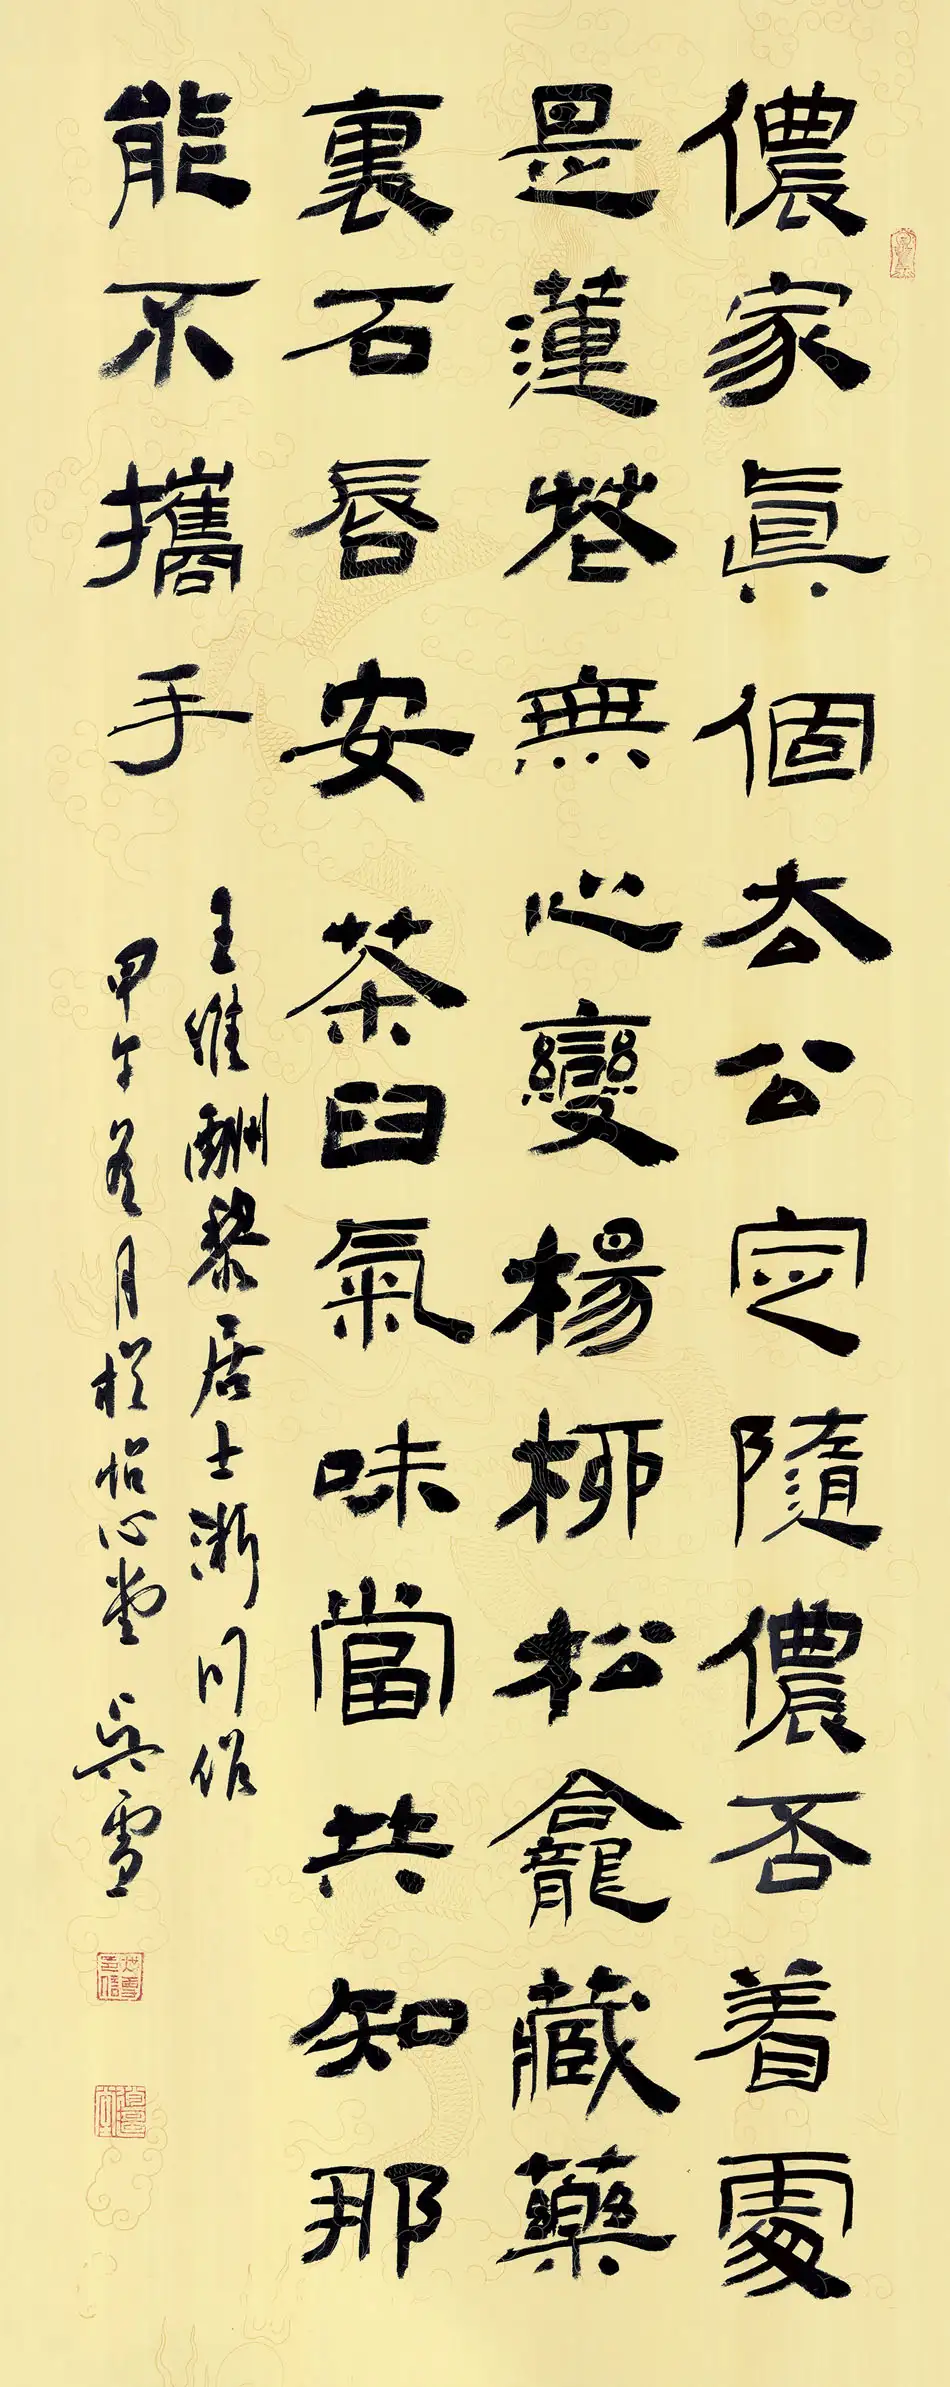 儂家真個去公定隨儂否着處
是蓮花無心變楊柳松龕藏藥
裏石唇安茶臼氣味當共知那
能不攜手
王維酬黎居士淅川作
甲午荷月於怡心堂 吳雪